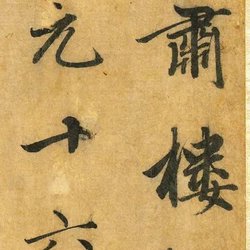 肅樓
元十六